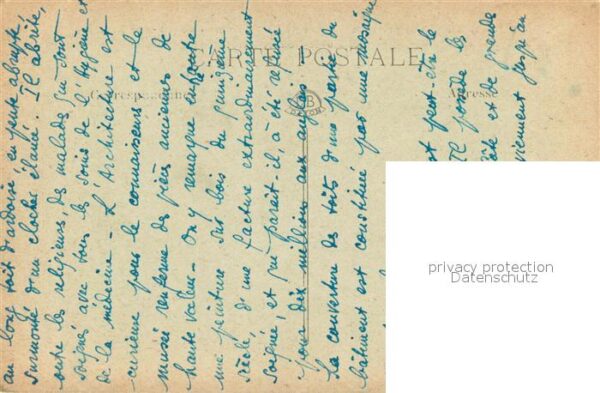 CARTE POSTALE
Correspondance
Adresse
au long toit d'ardoise en pente abrupte,
surmonté d'un clocher élancé. Il abrite,
outre les religieux, des malades qui sont
soignés avec tous les soins de l'hygiène et
de la médecine. L'Architecture est
curieuse pour le connaisseur et le
musée renferme des pièces anciennes de
haute valeur. On y remarque en outre
une peinture sur bois du quinzième
siècle d'une facture extraordinairement
soignée, et qui paraît-il, a été refusée
pour dix millions aux anglais
La couverture des toits d'une partie du
bâtiment est constituée par une
est peut-être le
Il possède les
et de grands
jusqu'au
privacy protection
Datenschutz